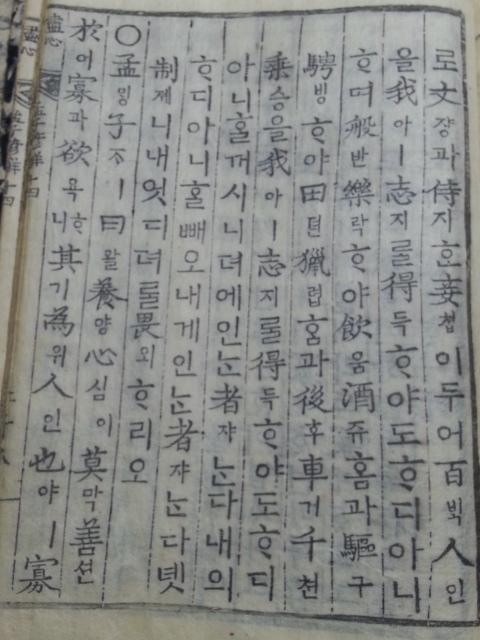 로丈쟝과侍시ᄒᆞᆫ妾쳡이두어百ᄇᆡᆨ人인
을我아ㅣ志지ᄅᆞᆯ得득ᄒᆞ야도ᄒᆞ디아니
ᄒᆞ며般반樂락ᄒᆞ야飮음酒쥬홈과驅구
騁빙ᄒᆞ야田뎐獵렵홈과後후車거千쳔
乘승을我아ㅣ志지ᄅᆞᆯ得득ᄒᆞ야도ᄒᆞ디
아니홀꺼시니뎌에인ᄂᆞᆫ者쟈ᄂᆞᆫ다내의
ᄒᆞ디아니홀빼오내게인ᄂᆞᆫ者쟈ᄂᆞᆫ다녯
制졔니내엇디뎌ᄅᆞᆯ畏외ᄒᆞ리오
○孟ᄆᆡᆼ子ᄌᆞㅣ曰왈養양心심이莫막善션
於어寡과欲욕ᄒᆞ니其기爲위人인也야ㅣ寡
盡心
孟子諺解十四